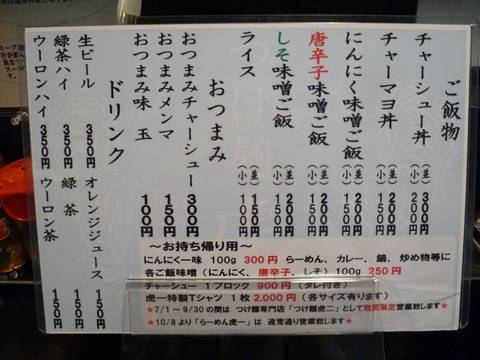 ご飯物
チャーシュー丼
チャーマヨ丼
にんにく味噌ご飯 (並) 200円
(小) 150円
唐辛子味噌ご飯 (並) 200円
(小) 150円
しそ味噌ご飯 (並) 200円
(小) 150円
ライス (並) 150円
(小) 100円
おつまみ
おつまみチャーシュー 300円
おつまみメンマ 150円
おつまみ味玉 100円
ドリンク
生ビール 350円
緑茶ハイ 350円
ウーロンハイ 350円
オレンジジュース 150円
緑茶 150円
ウーロン茶 150円
～お持ち帰り用～
にんにく一味 100g 300円 らーめん、カレー、鍋、炒め物等に
各ご飯味噌（にんにく、唐辛子、しそ）100g 250円
チャーシュー 1ブロック 900円（タレ付き）
虎一特製Tシャツ 1枚 2,000円（各サイズ有ります）
★7/1～9/30の間は つけ麺専門店「つけ麺虎二」として期間限定営業致します★
★10/8より「らーめん虎一」は 通常通り営業致します★